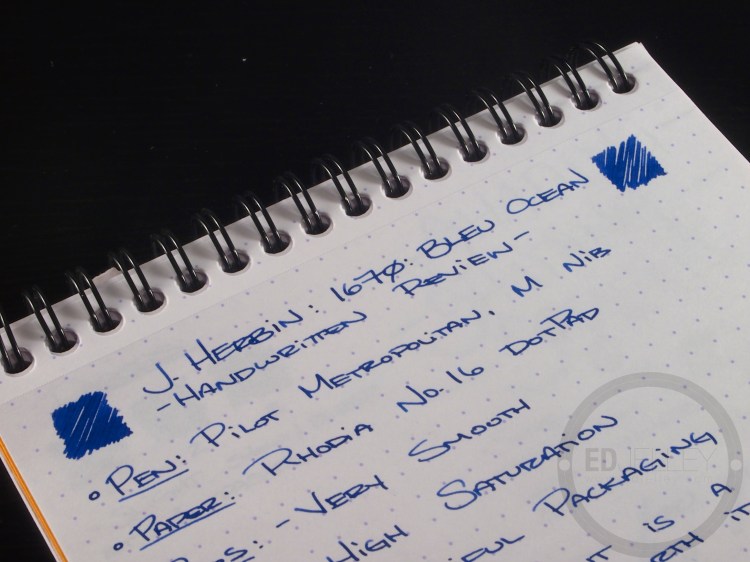 J. HERBIN: 1670: BLEU OCEAN
-HANDWRITTEN REVIEW-
• PEN: PILOT METROPOLITAN, M NIB
• PAPER: RHODIA NO. 16 DOTPAD
- VERY SMOOTH
HIGH SATURATION
PACKAGING
IT IS A
IT
ED JELLEY